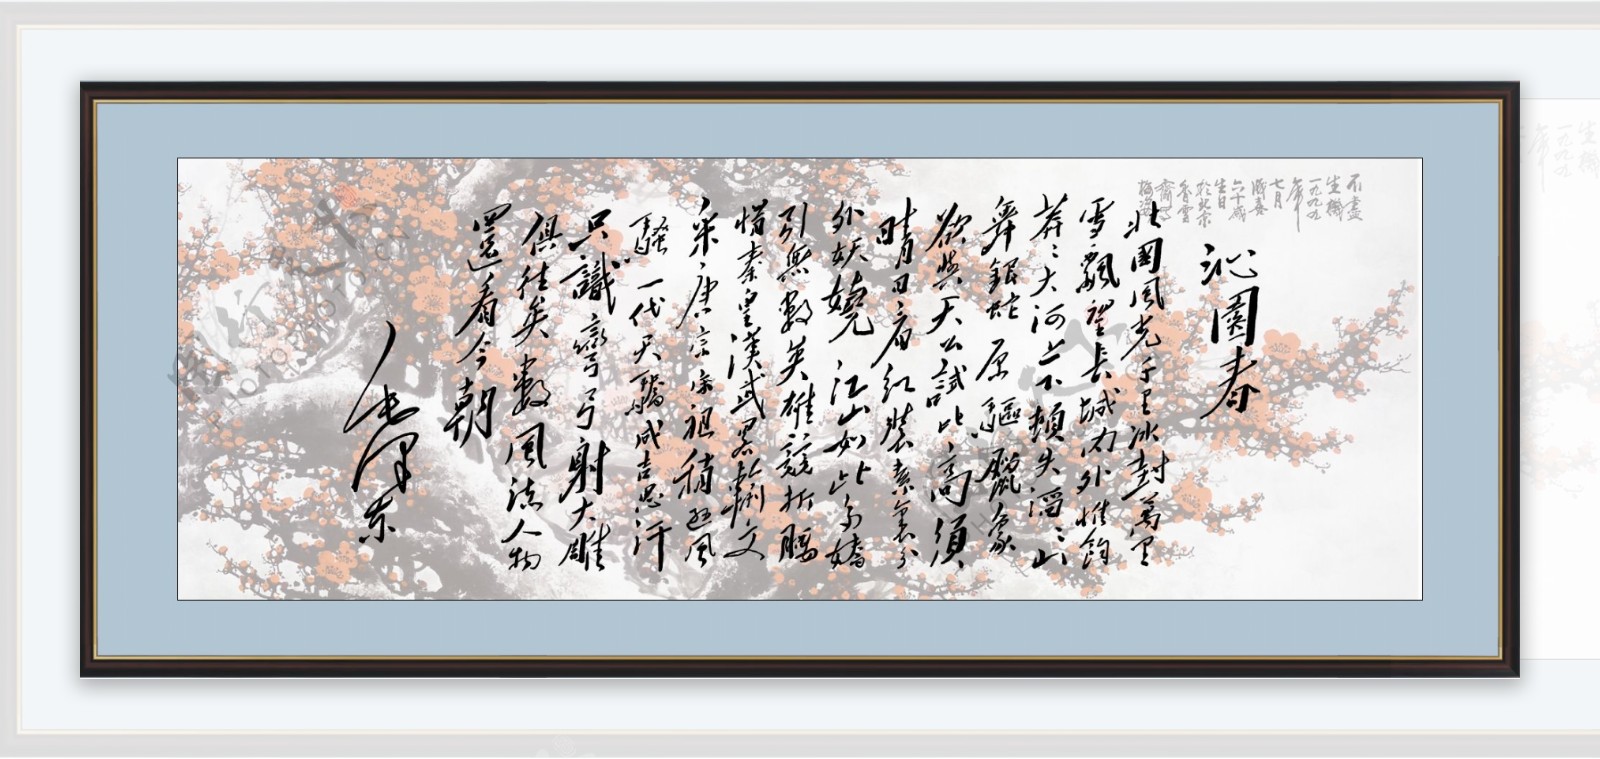 不盡
生機
一九九九
年
七月
六十歲
生日
於北京
香雪
沁園春
北國風光千里冰封萬里
雪飄望長城内外惟餘
莽々大河上下頓失滔々山
舞銀蛇原驅臘象
欲與天公試比高須
晴日看紅裝素裹分
外妖嬈江山如此多嬌
引無數英雄競折腰
惜秦皇漢武略輸文
采唐宗宋祖稍遜風
騷一代天驕成吉思汗
只識彎弓射大雕
俱往矣數風流人物
還看今朝
毛澤東